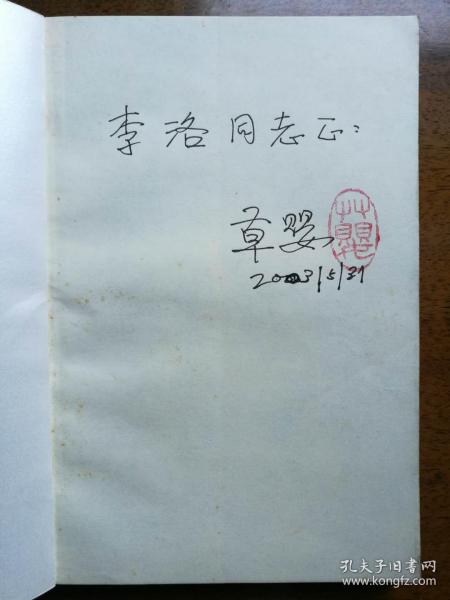 李洛同志正：
草婴
2003/5/31
草婴
孔夫子旧书网
www.kongfz.com